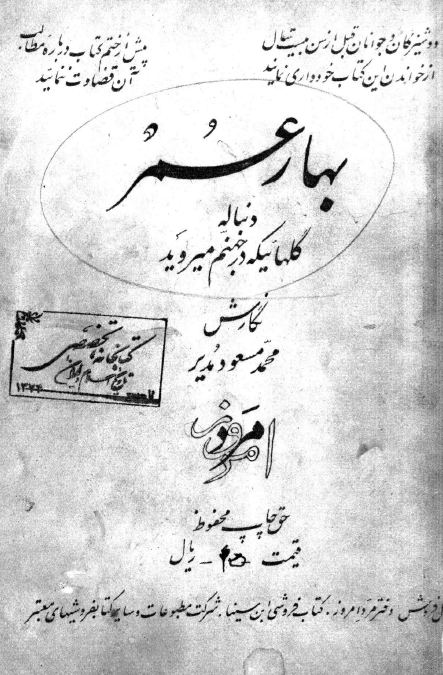 دوشیزگان و جوانان قبل از سن بیست سال
از خواندن این کتاب خودداری نمایند
پیش از ختم کتاب درباره مطالب
آن قضاوت ننمائید
بهار عمر
دنباله
گلهائیکه در جهنم میروید
نگارش
محمد مسعود مدیر
مرد امروز
کتابخانه تخصصی
تاریخ اسلام و ایران
۱۳۴۴
حق چاپ محفوظ
قیمت ریال
فروش دفتر مرد امروز. کتاب فروشی ابن سینا. شرکت مطبوعات و سایر کتابفروشیهای معتبر